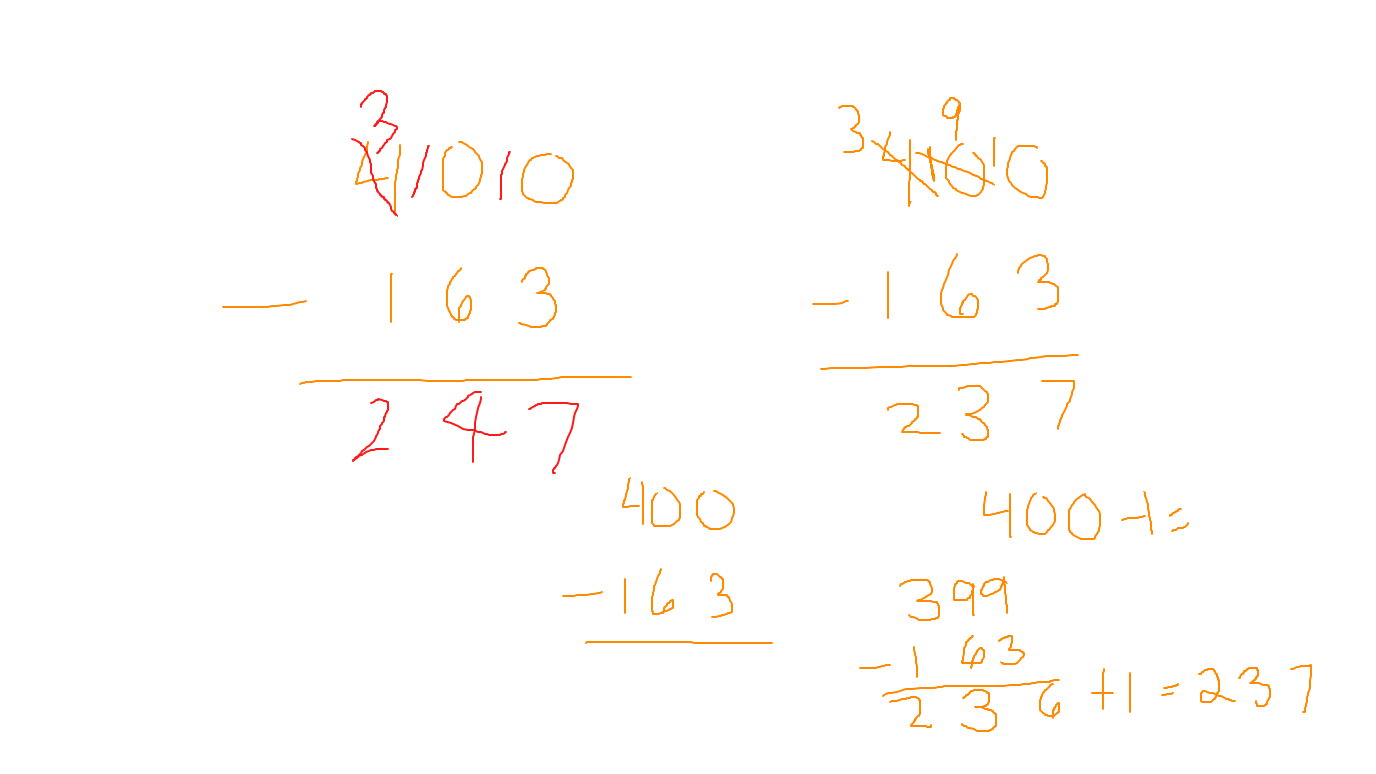 3
4 10 10
- 1 6 3
2 4 7
3 9
4 10 10
- 1 6 3
2 3 7
400
- 1 6 3
400 - 1 =
399
- 1 6 3
2 3 6 + 1 = 2 3 7